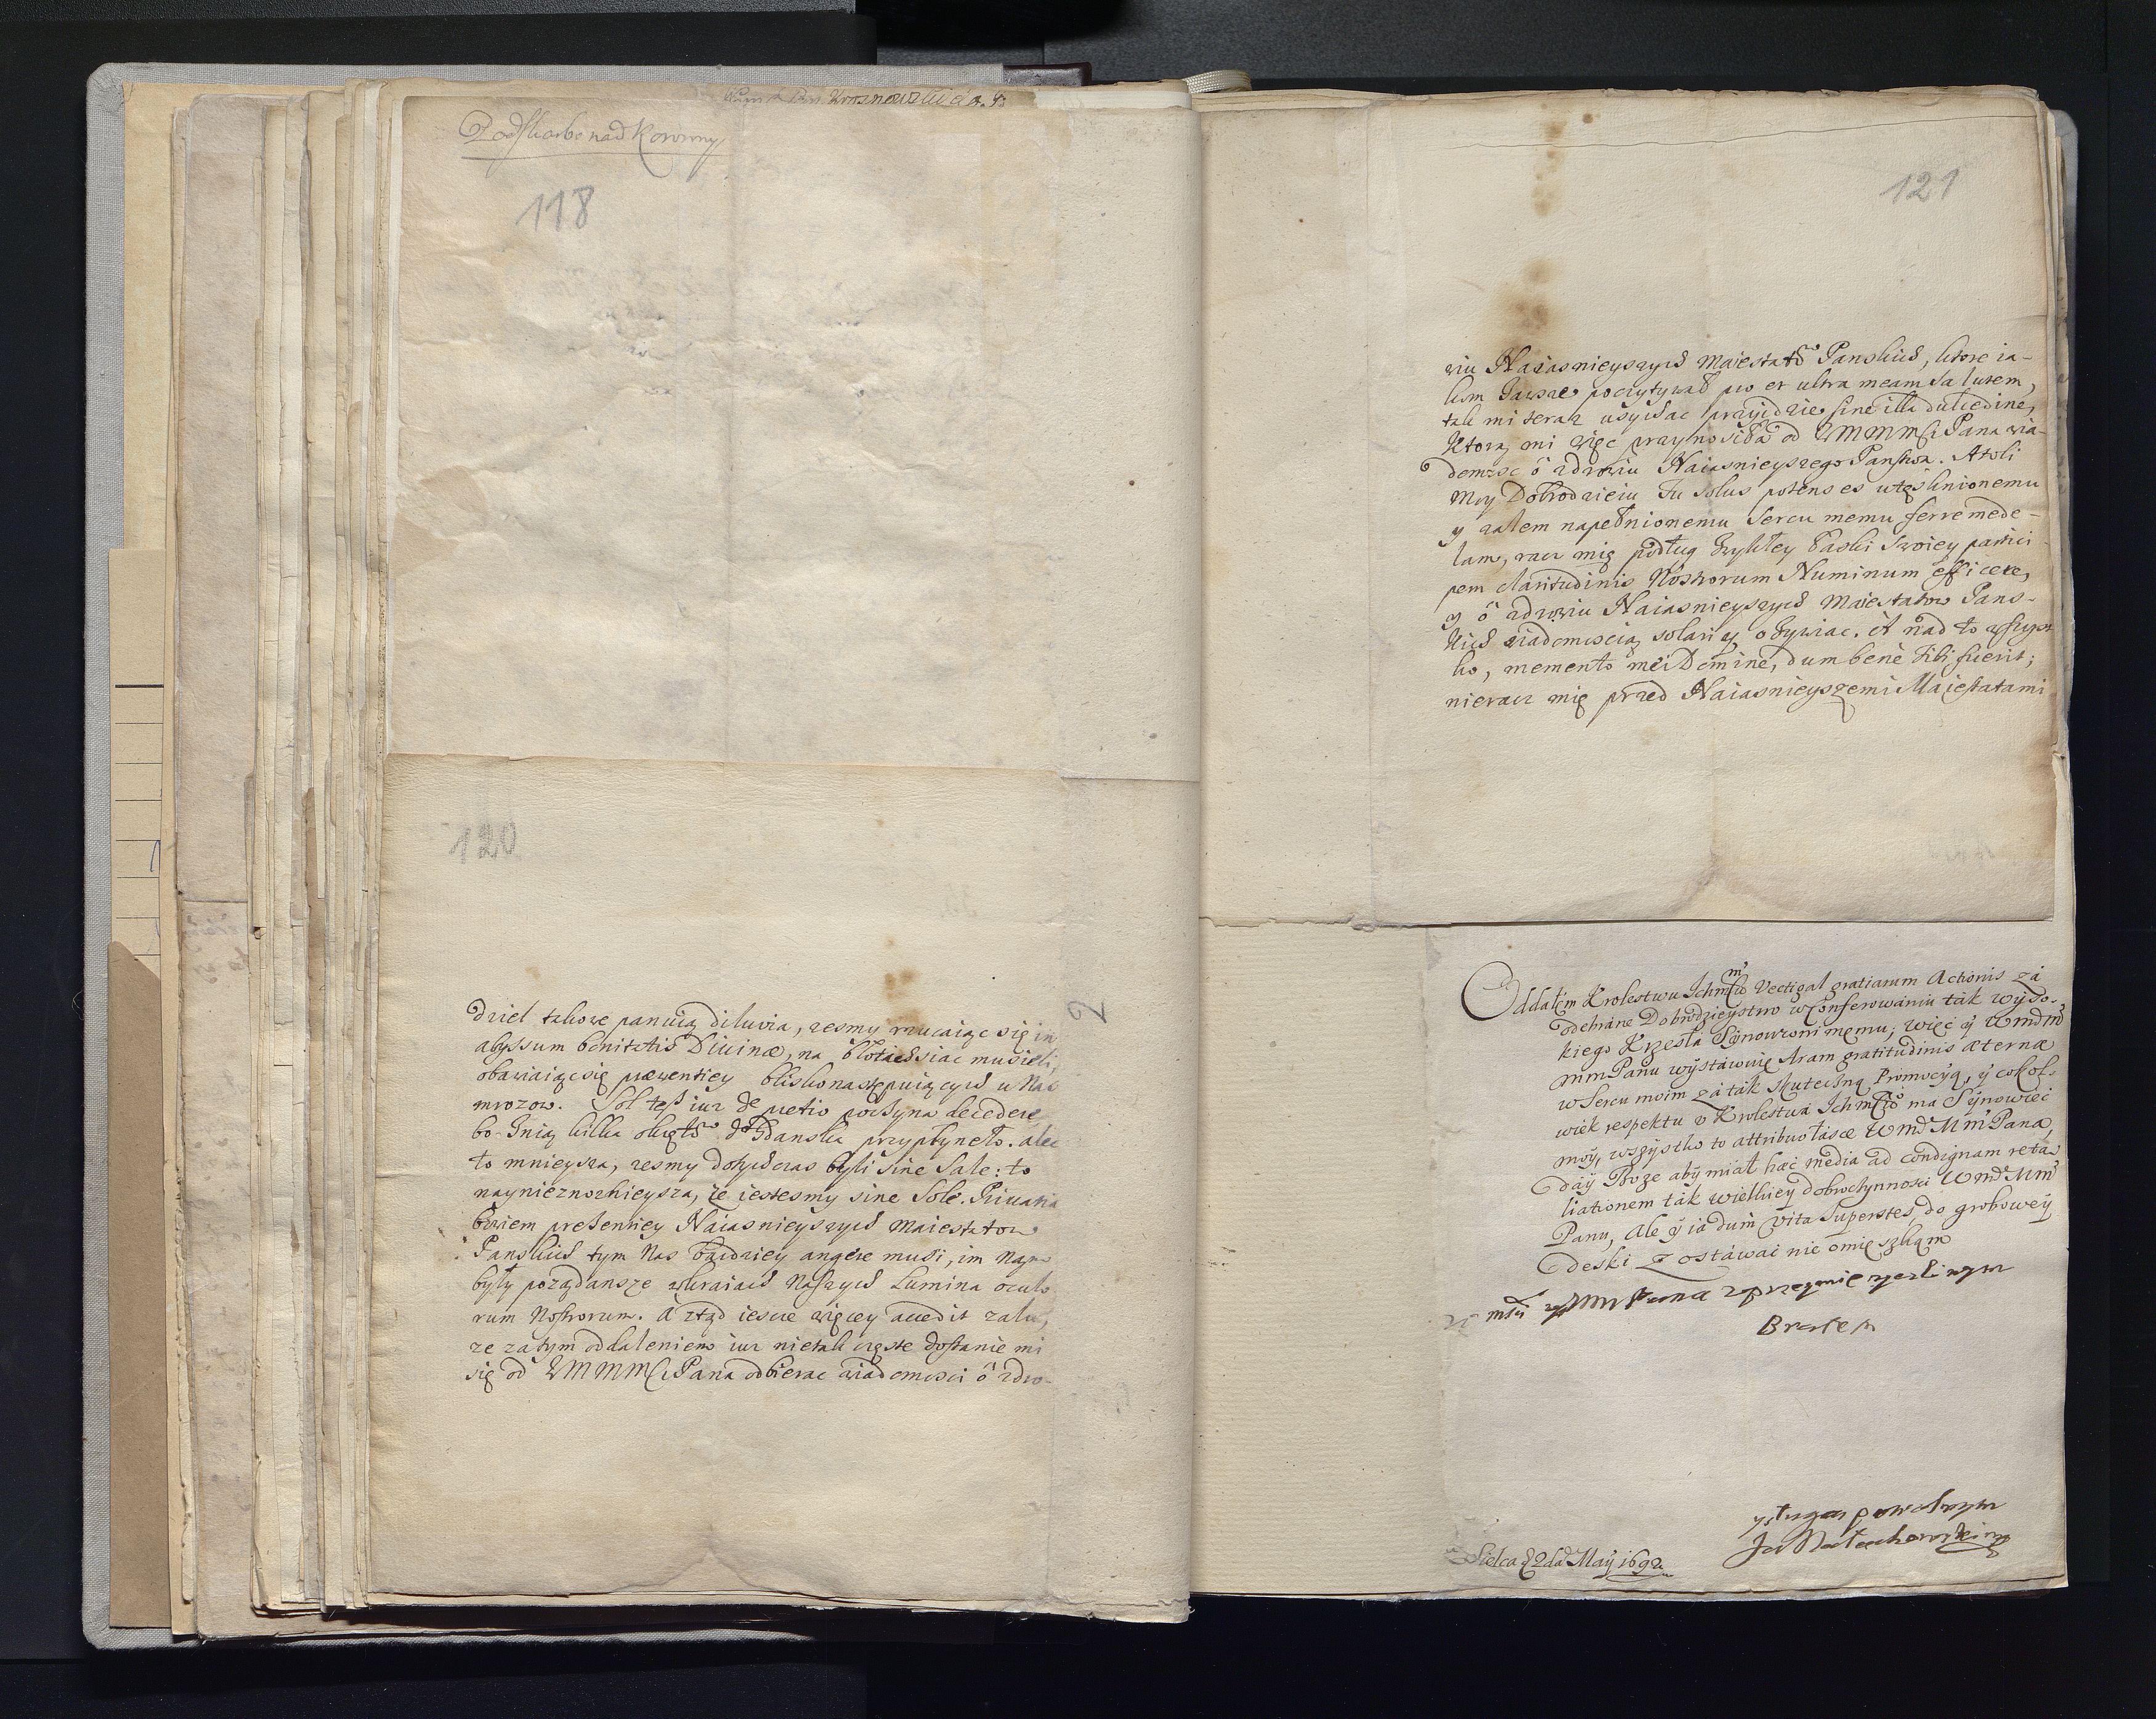 Podskarbi nad Koronny
118
120
dziel takowe panuią diluvia, zesmy rzucaiąc się in
abyssum bonitatis Divinæ, na błotach siac musieli,
obawiaiąc się prezentiey blisko następuiących u Nas
mrozow. Sol też iuz de pretio poczyna decedere,
bo Inią kilka okrętow do Gdanska przypłyneło. ale
to mnieysza, zesmy dotychczas byli sine Sale: to
nayniéznozhieysza, że iestesmy sine Sole. Privatia
bowiem presentiey Naiasnieyszych Maiestatow
Panskich tym Nas bardziey angere musi, im Nam
były pożądansze w kraiach Naszych Lumina oculo
rum Nostrorum. A ztąd iescze więcey accedit zalu,
ze za tym oddaleniem iuz nietak częste dostanie mi
się od WMMMści Pana odbierac wiadomosci ó zdro-
2
121
wiu Naiasnieyszych Maiestatow Panskich, ktore ia-
kom zawsze poczytywał pro et ultra meam salutem,
tak mi teraz usychac przyidzie sine illa dulcedine,
ktorą mi więc przynosiła od WMMMści Pana wia-
domosc ó zdrowiu Naiasnieyszego Panstwa. Atoli
Moy Dobrodzieiu Tu solus potens es utęsknionemu
y zalem napełnionemu Sercu memu ferre mede-
lam, racz mię podług zwykłey łaski swoiey partici
pem claritudinis Nostrorum Numinum efficere,
y ó zdrowiu Naiasnieyszych Maiestatow Pans-
kich wiadomoscią solari y ożywiac. A nad to wszyst
ko, memento mei Domine, dum bene tibi fuerit;
nieracz mię przed Naiasnieyszemi Maiestatami
Oddałem Krolestwu Ichmściow Vectigal gratiarum Actionis zá
odebrane Dobrodzieystwo w Conferowaniu ták wyso-
kiego Krzesła Synowcowi memu; więc ÿ WMMM
mm Panu wystawuię Aram gratitudinis æternæ
w Sercu moim zá ták skuteczną Promocyą, ÿ cokol-
wiek respektu v Krolestwá Ichmściow ma Synowiec
moÿ, wszystko to attribuo łasce WMMM Pana,
daÿ Boze abÿ miał hæc media ad condignam reta-
liationem ták wielkieÿ dobroczynnosci WMMM
Panu, Ale ÿ ia dum vita Superstes do groboweÿ
deski zostáwać nie omięszkam
WMM Pana uprzeymie zyczliwym
Bratem
ysługą powolnym
Jan Małachowski
z Sielca d 2da Maÿ 1692